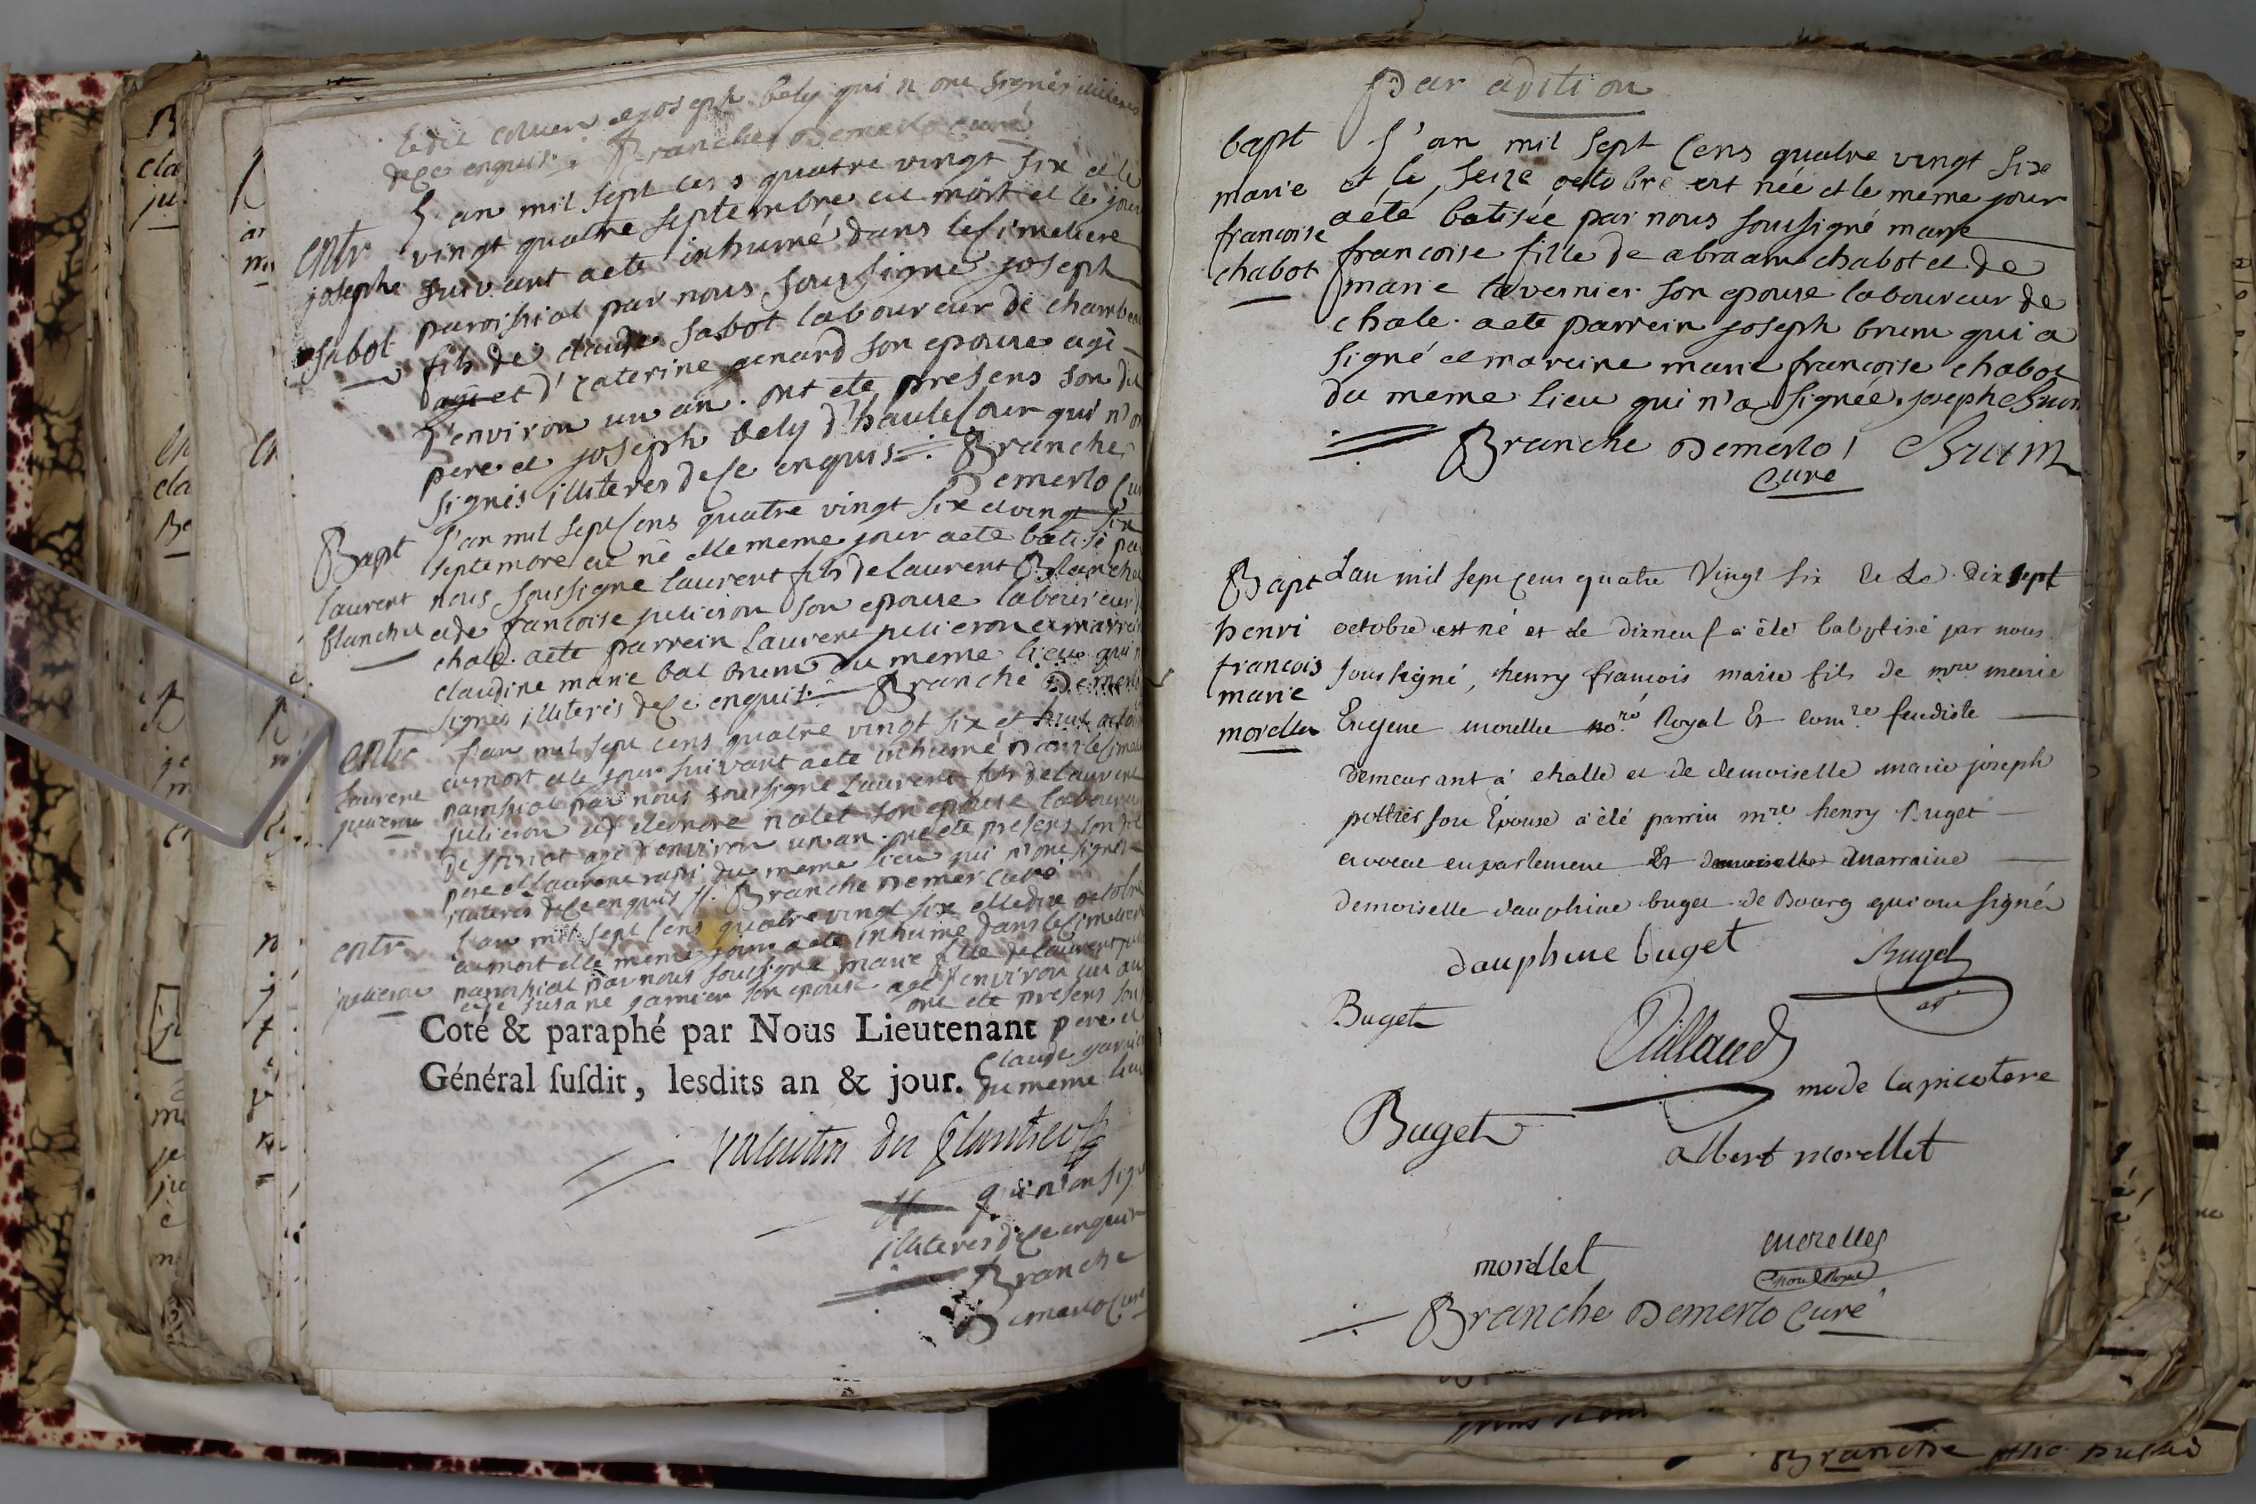 ledit et joseph bely qui n'ont signés illiteres
de ce enquis ./. Branche Demerlo curé
entr
josephe
sabot
L'an mil sept cens quatre vingt six et le
vingt quatre septembre est mort et le jour
suivant aete inhumé dans le cimetiere
paroissial par nous soussigné joseph
fils de claude sabot laboureur de chambe
et d'caterine genard son epouse agé
d'environ un an. ont ete presens son dit
pere et joseph bely d'hautecour qui n'on
signés illiteres de ce enquis ./. Branche
Demerlo cu
Bapt
laurent
blanchet
L'an mil sept cens quatre vingt six et vingt six
septembre est né et le meme jour aete batisé par
nous soussigné laurent fils de laurent Blanchet
et de francoise julieron son epouse laboureur
chale. aete parrein Laurent julieron et marrei
claudine marie bal brun du meme lieu qui
signés illiteres de ce enquis ./. Branche Demerl
entr
laurent
julieron
L'an mil sept cens quatre vingt six et huit octo
est mort et le jour suivant aete inhumé dans le cime
paroissial par nous soussigné Laurent fils de laurent
julieron et d'eleonore nalet son epouse laboureu
de agé d'environ un an. ont ete presens son dit
pere et laurent du meme lieu qui n'ont signés
illiteres de ce enquis ./. Branche Demer curé
entr
julieron
L'an mil sept cens quatre vingt six et le dix octobre
est mort et le meme jour aete inhumé dans le cimetiere
paroissial par nous soussigné marie fille de laurent juli
et de susane garnier son epouse agé d'environ un an
ont ete presens son
pere et
claude garnie
du meme lieu
Coté & paraphé par Nous Lieutenant
Général ſuſdit, lesdits an & jour.
qui n'ont sign
illiteres de ce enquis
Branche
Demerlo curé
Par adition
bapt
marie
francoise
chabot
L'an mil sept cens quatre vingt six
et le seize octobre est née et le meme jour
aété batisée par nous soussigné marie
francoise fille de abraam chabot et de
marie tavernier son epouse laboureur de
chale. aete parrein joseph brun qui a
signé et mareine marie francoise chabot
du meme lieu qui n'a signée. joseph Brun
Branche Demerlo Bruin
curé
Bapt
henri
francois
marie
morellet
L'an mil sept cens quatre Vingt six & Le dix sept
octobre est né et Le dixneuf a été babptisé par nous
soussigné, henry francois marie fils de mre marie
Eugene morellet nore Royal Et comre feudiste
demeurant a challe et de demoiselle marie joseph
pottier son Epouse a été parrin mre henry Buget
avocat en parlement Et demoiselle marraine
demoiselle dauphine buget de Bourg qui ont signés
dauphine buget Buget
Buget
mode lapicotere
Buget
albert morellet
morellet morellet
Branche Demerlo curé
Branche